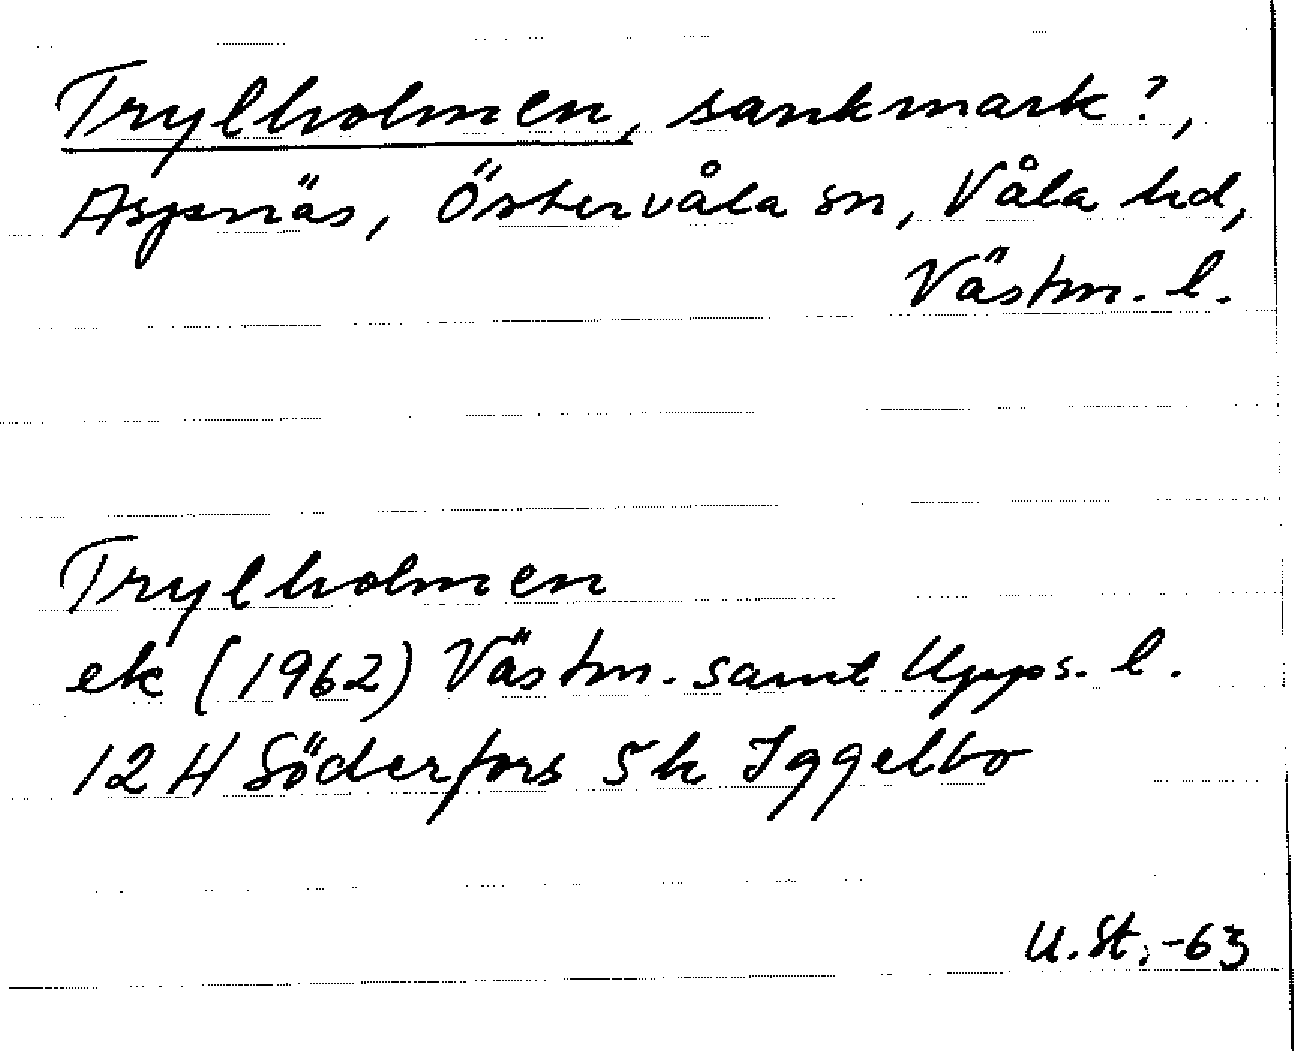 Trylholmen, sankmark?,
Aspnäs, Östervåla sn, Våla hd,
Västm. l.
Trylholmen
ek (1962) Västm. samt Upps. l.
12 H Söderfors 5 k Iggelbo
U.St. -63